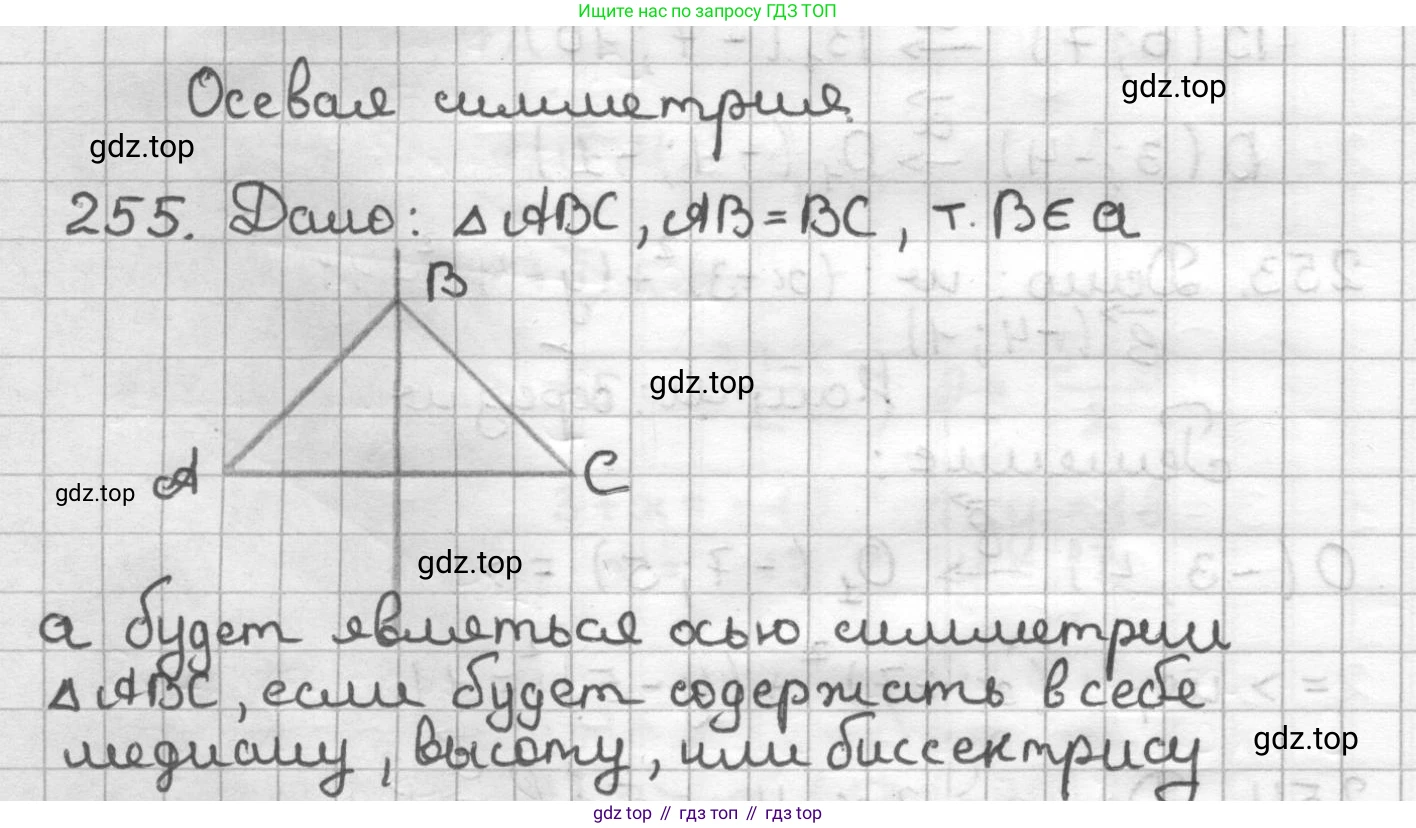 Ищите нас по запросу ГДЗ ТОП
Осевая симметрия.
gdz.top
gdz.top
255. Дано: △ABC, AB = BC, т. B∈a
B
gdz.top
A
C
gdz.top
gdz.top
a будет являться осью симметрии
△ABC, если будет содержать в себе
медиану, высоту, или биссектрису
gdz.top
gdz top // гдз топ // гдз top